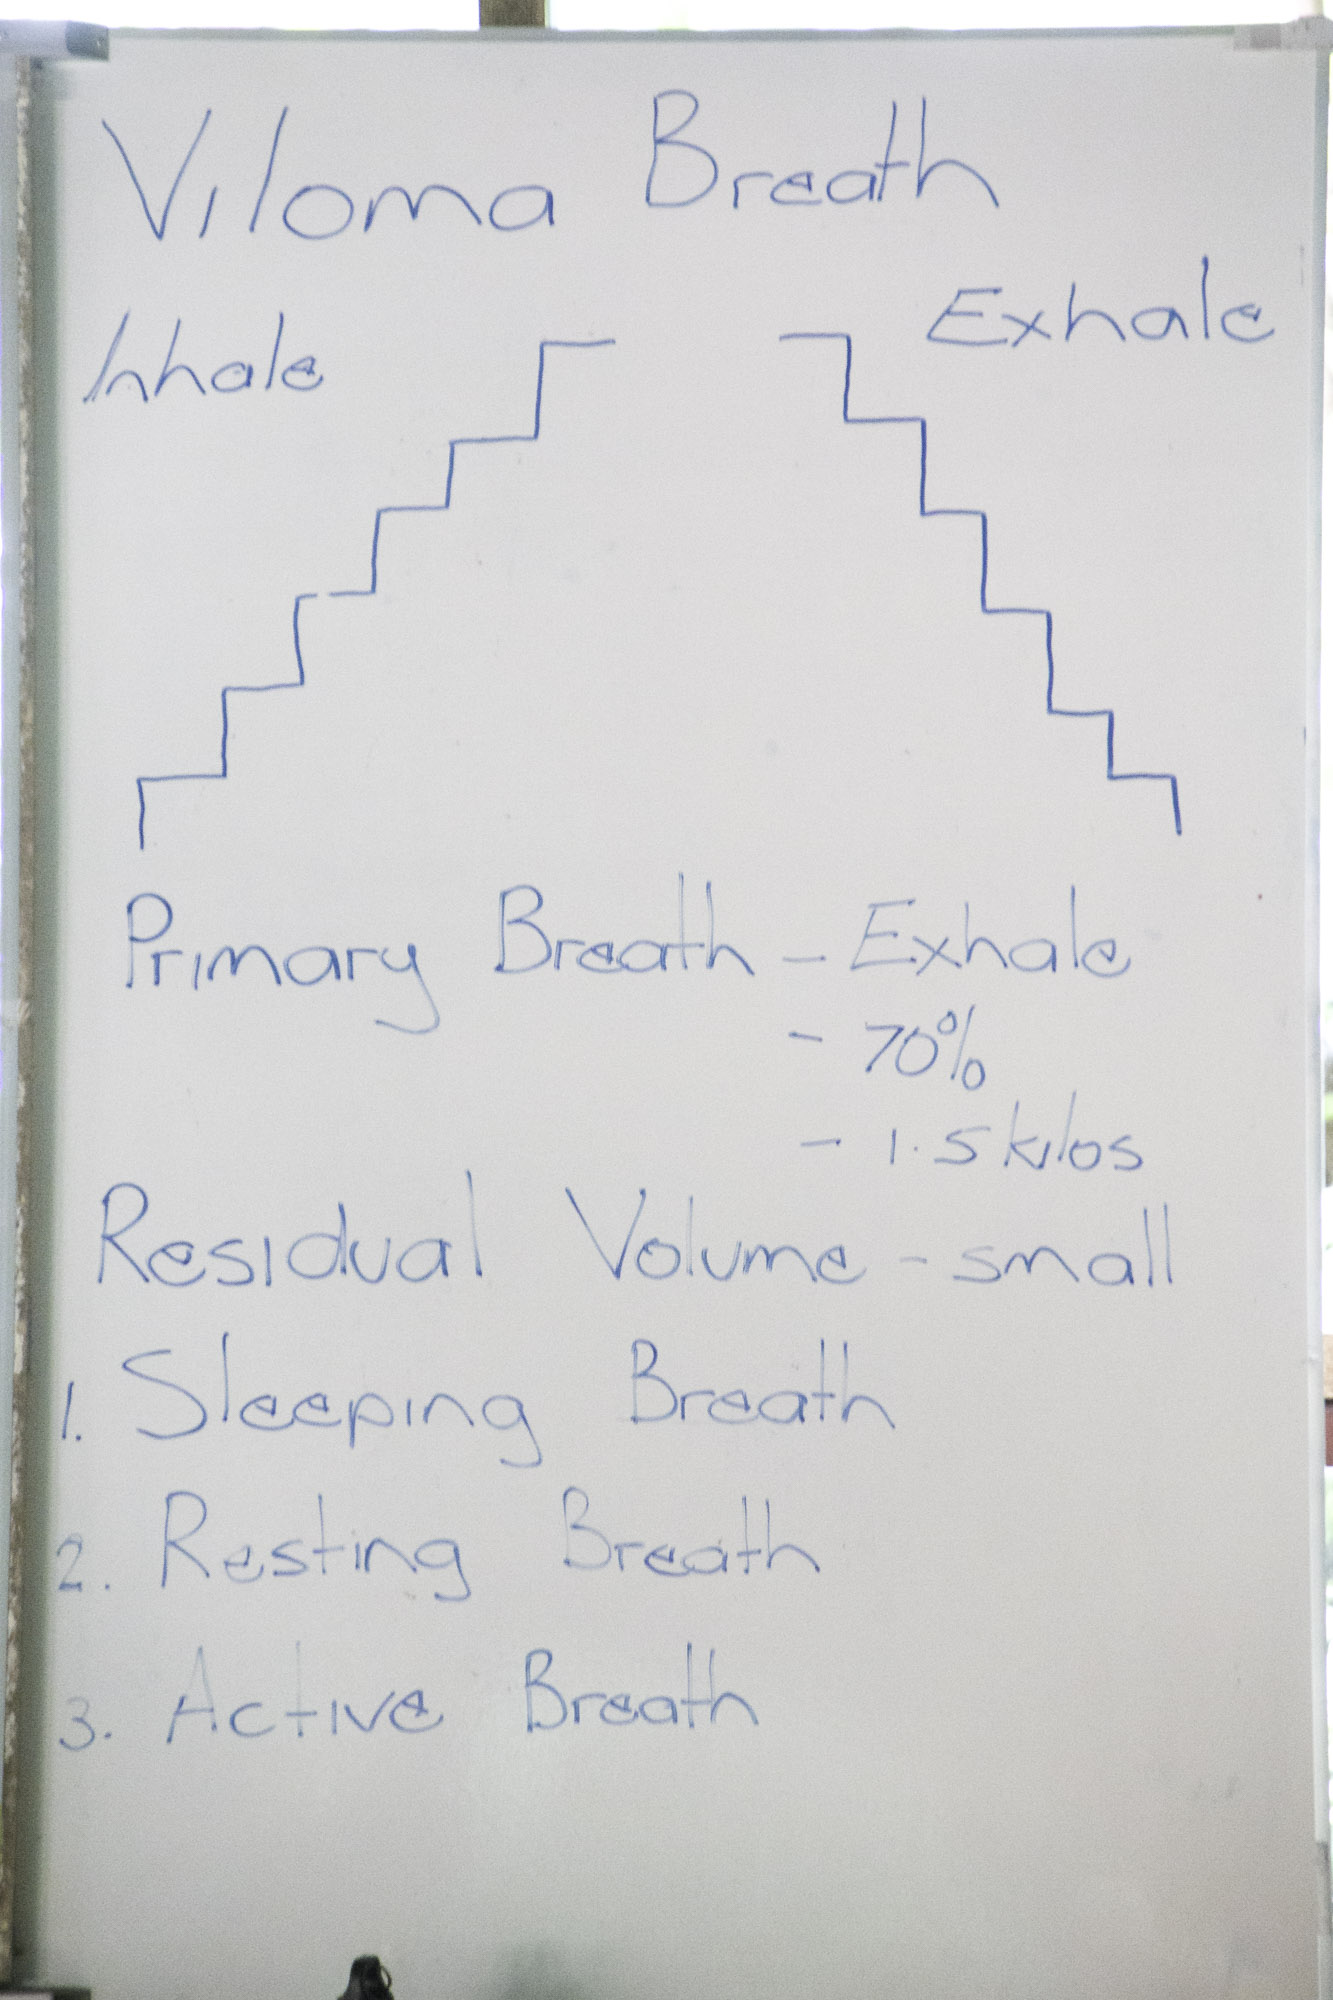 Viloma Breath
Inhale
Exhale
Primary Breath - Exhale
- 70%
- 1.5 kilos
Residual Volume - small
1. Sleeping Breath
2. Resting Breath
3. Active Breath